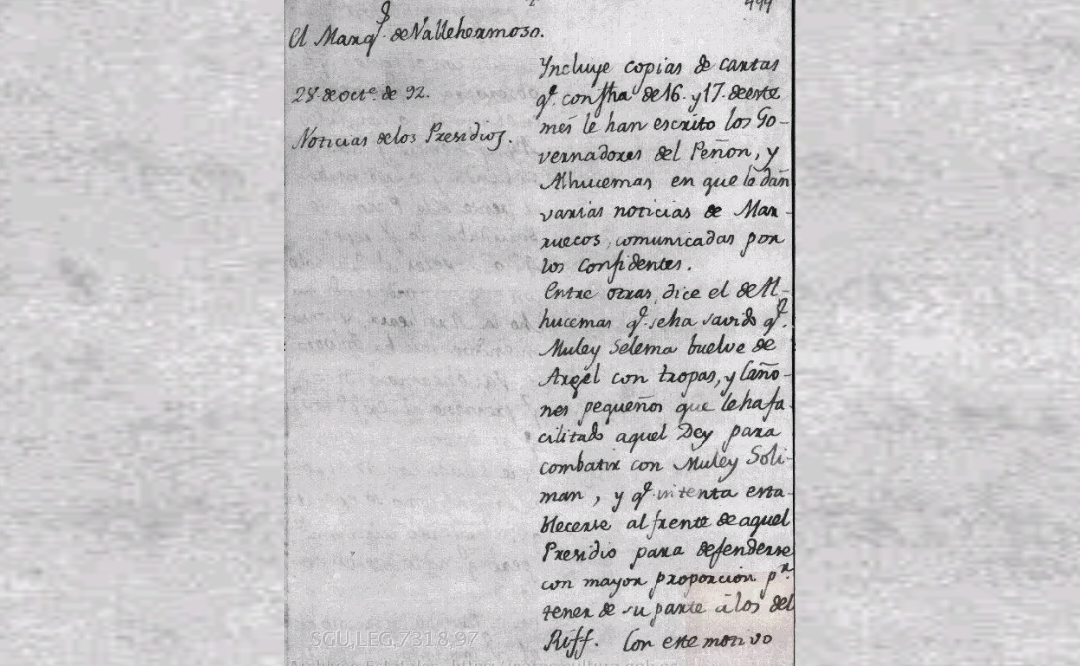 499
El Marqs. de Vallehermoso.
23 de octe. de 92.
Noticias de los Presidios.
Yncluye copias de cartas
qe. con fha de 16. y 17. de este
més le han escrito los Go-
vernadores del Peñon, y
Alhucemas en que le dán
varias noticias de Mar-
ruecos, comunicadas por
los Confidentes.
Entre otras, dice el de Al-
hucemas qe. se ha savido qe.
Muley Selema buelve de
Argél con tropas, y Caño-
nes pequeños que le ha fa-
cilitado aquel Dey para
combatir con Muley Soli-
man, y qe. intenta esta-
blecerse al frente de aquel
Presidio para defenderse
con mayor proporcion pr.
tener de su parte á los del
Riff. Con este motivo
SGU,LEG,7318,97